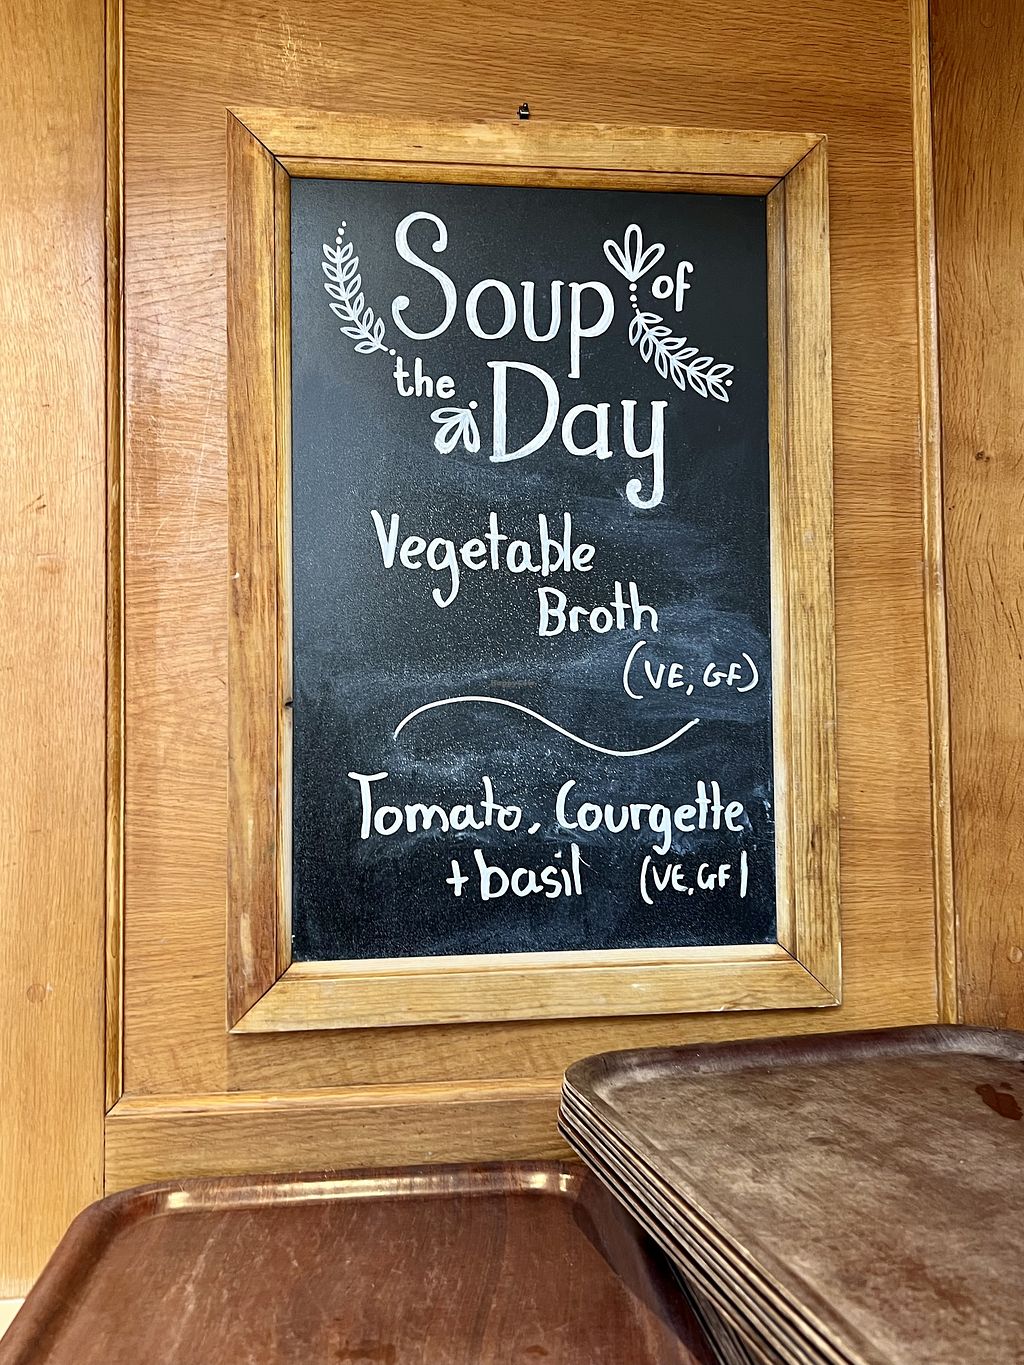 Soup of
the Day
Vegetable
Broth
(VE, GF)
Tomato, Courgette
+ basil (VE, GF)